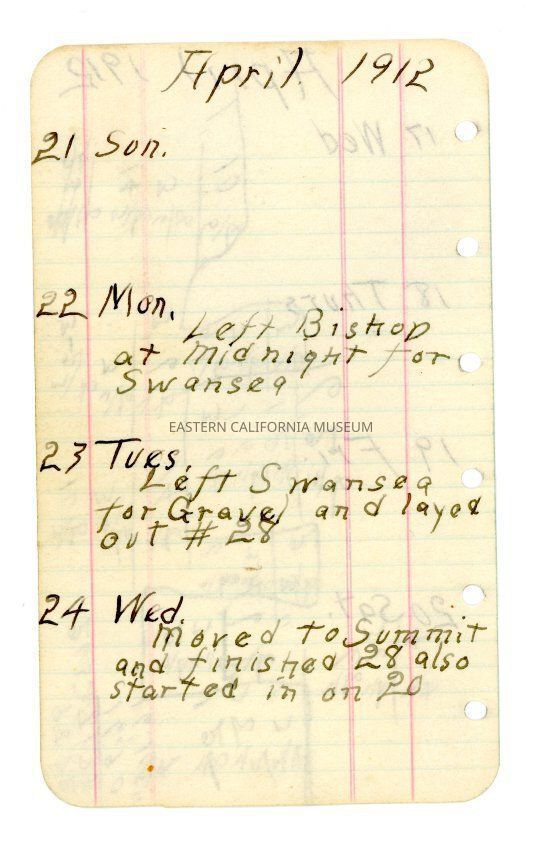 April 1912
21 Sun.
22 Mon.
Left Bishop
at midnight for
Swansea
EASTERN CALIFORNIA MUSEUM
23 Tues.
Left Swansea
for Gravel and layed
out # 28
24 Wed.
Moved to Summit
and finished 28 also
started in on 20